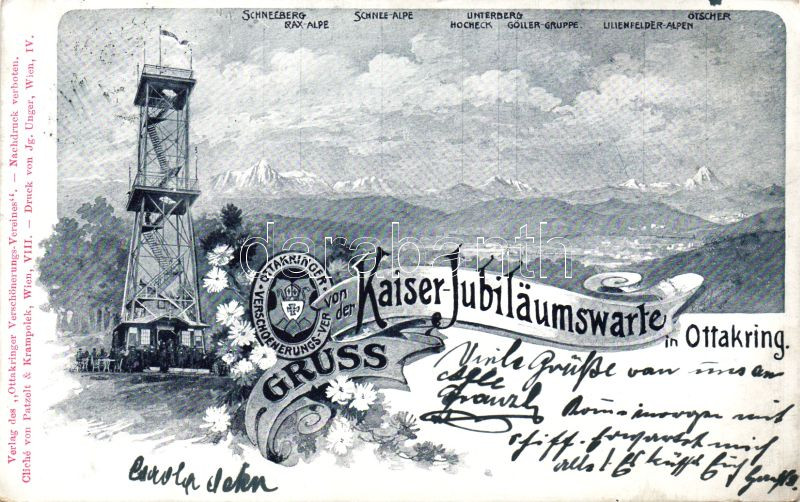 SCHNEEBERG SCHNEE-ALPE UNTERBERG ÖTSCHER
RAX-ALPE HOCHECK GÖLLER-GRUPPE. LILIENFELDER-ALPEN
Verlag des „Ottakringer Verschönerungs-Vereines“. — Nachdruck verboten.
Cliché von Patzelt & Krampolek, Wien, VIII. — Druck von Jg. Unger, Wien, IV.
darabanth
OTTAKRINGER
VERSCHOENERUNGS-VER
GRUSS
von der
Kaiser-Jubiläumswarte
in Ottakring.
Viele Grüße von uns an
alle
Franzl
mit
schiff. Erwartet mich
alle! Es küsst Euch